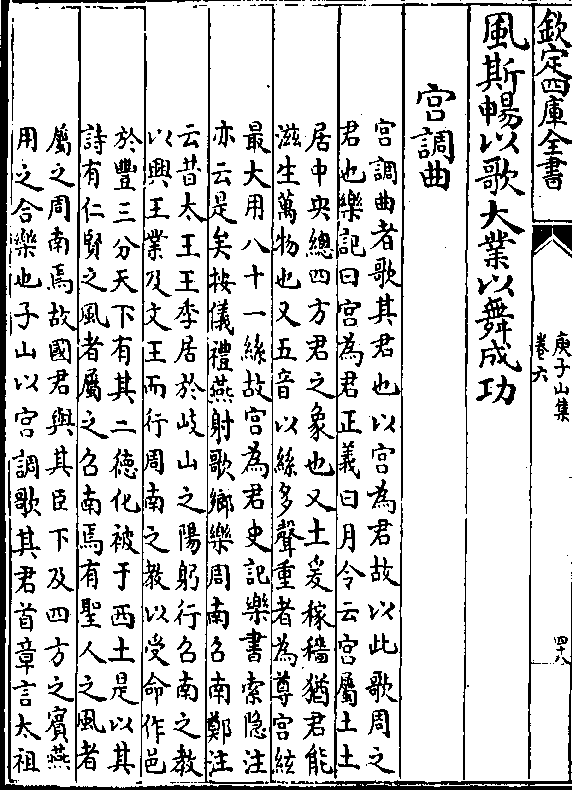 欽定四庫全書
庾子山集
卷六
四十八
風斯暢以歌大業以舞成功
宮調曲
宮調曲者歌其君也以宮為君故以此歌周之
君也樂記曰宮為君正義曰月令云宮屬土土
居中央總四方君之象也又土爰稼穡猶君能
滋生萬物也又五音以絲多聲重者為尊宮絃
最大用八十一絲故宮為君史記樂書索隐注
亦云是矣按儀禮燕射歌鄉樂周南召南鄭注
云昔太王王季居於岐山之陽躬行召南之教
以興王業及文王而行周南之教以受命作邑
於豐三分天下有其二德化被于西土是以其
詩有仁賢之風者屬之召南焉有聖人之風者
屬之周南焉故國君與其臣下及四方之賓燕
用之合樂也子山以宮調歌其君首章言太祖